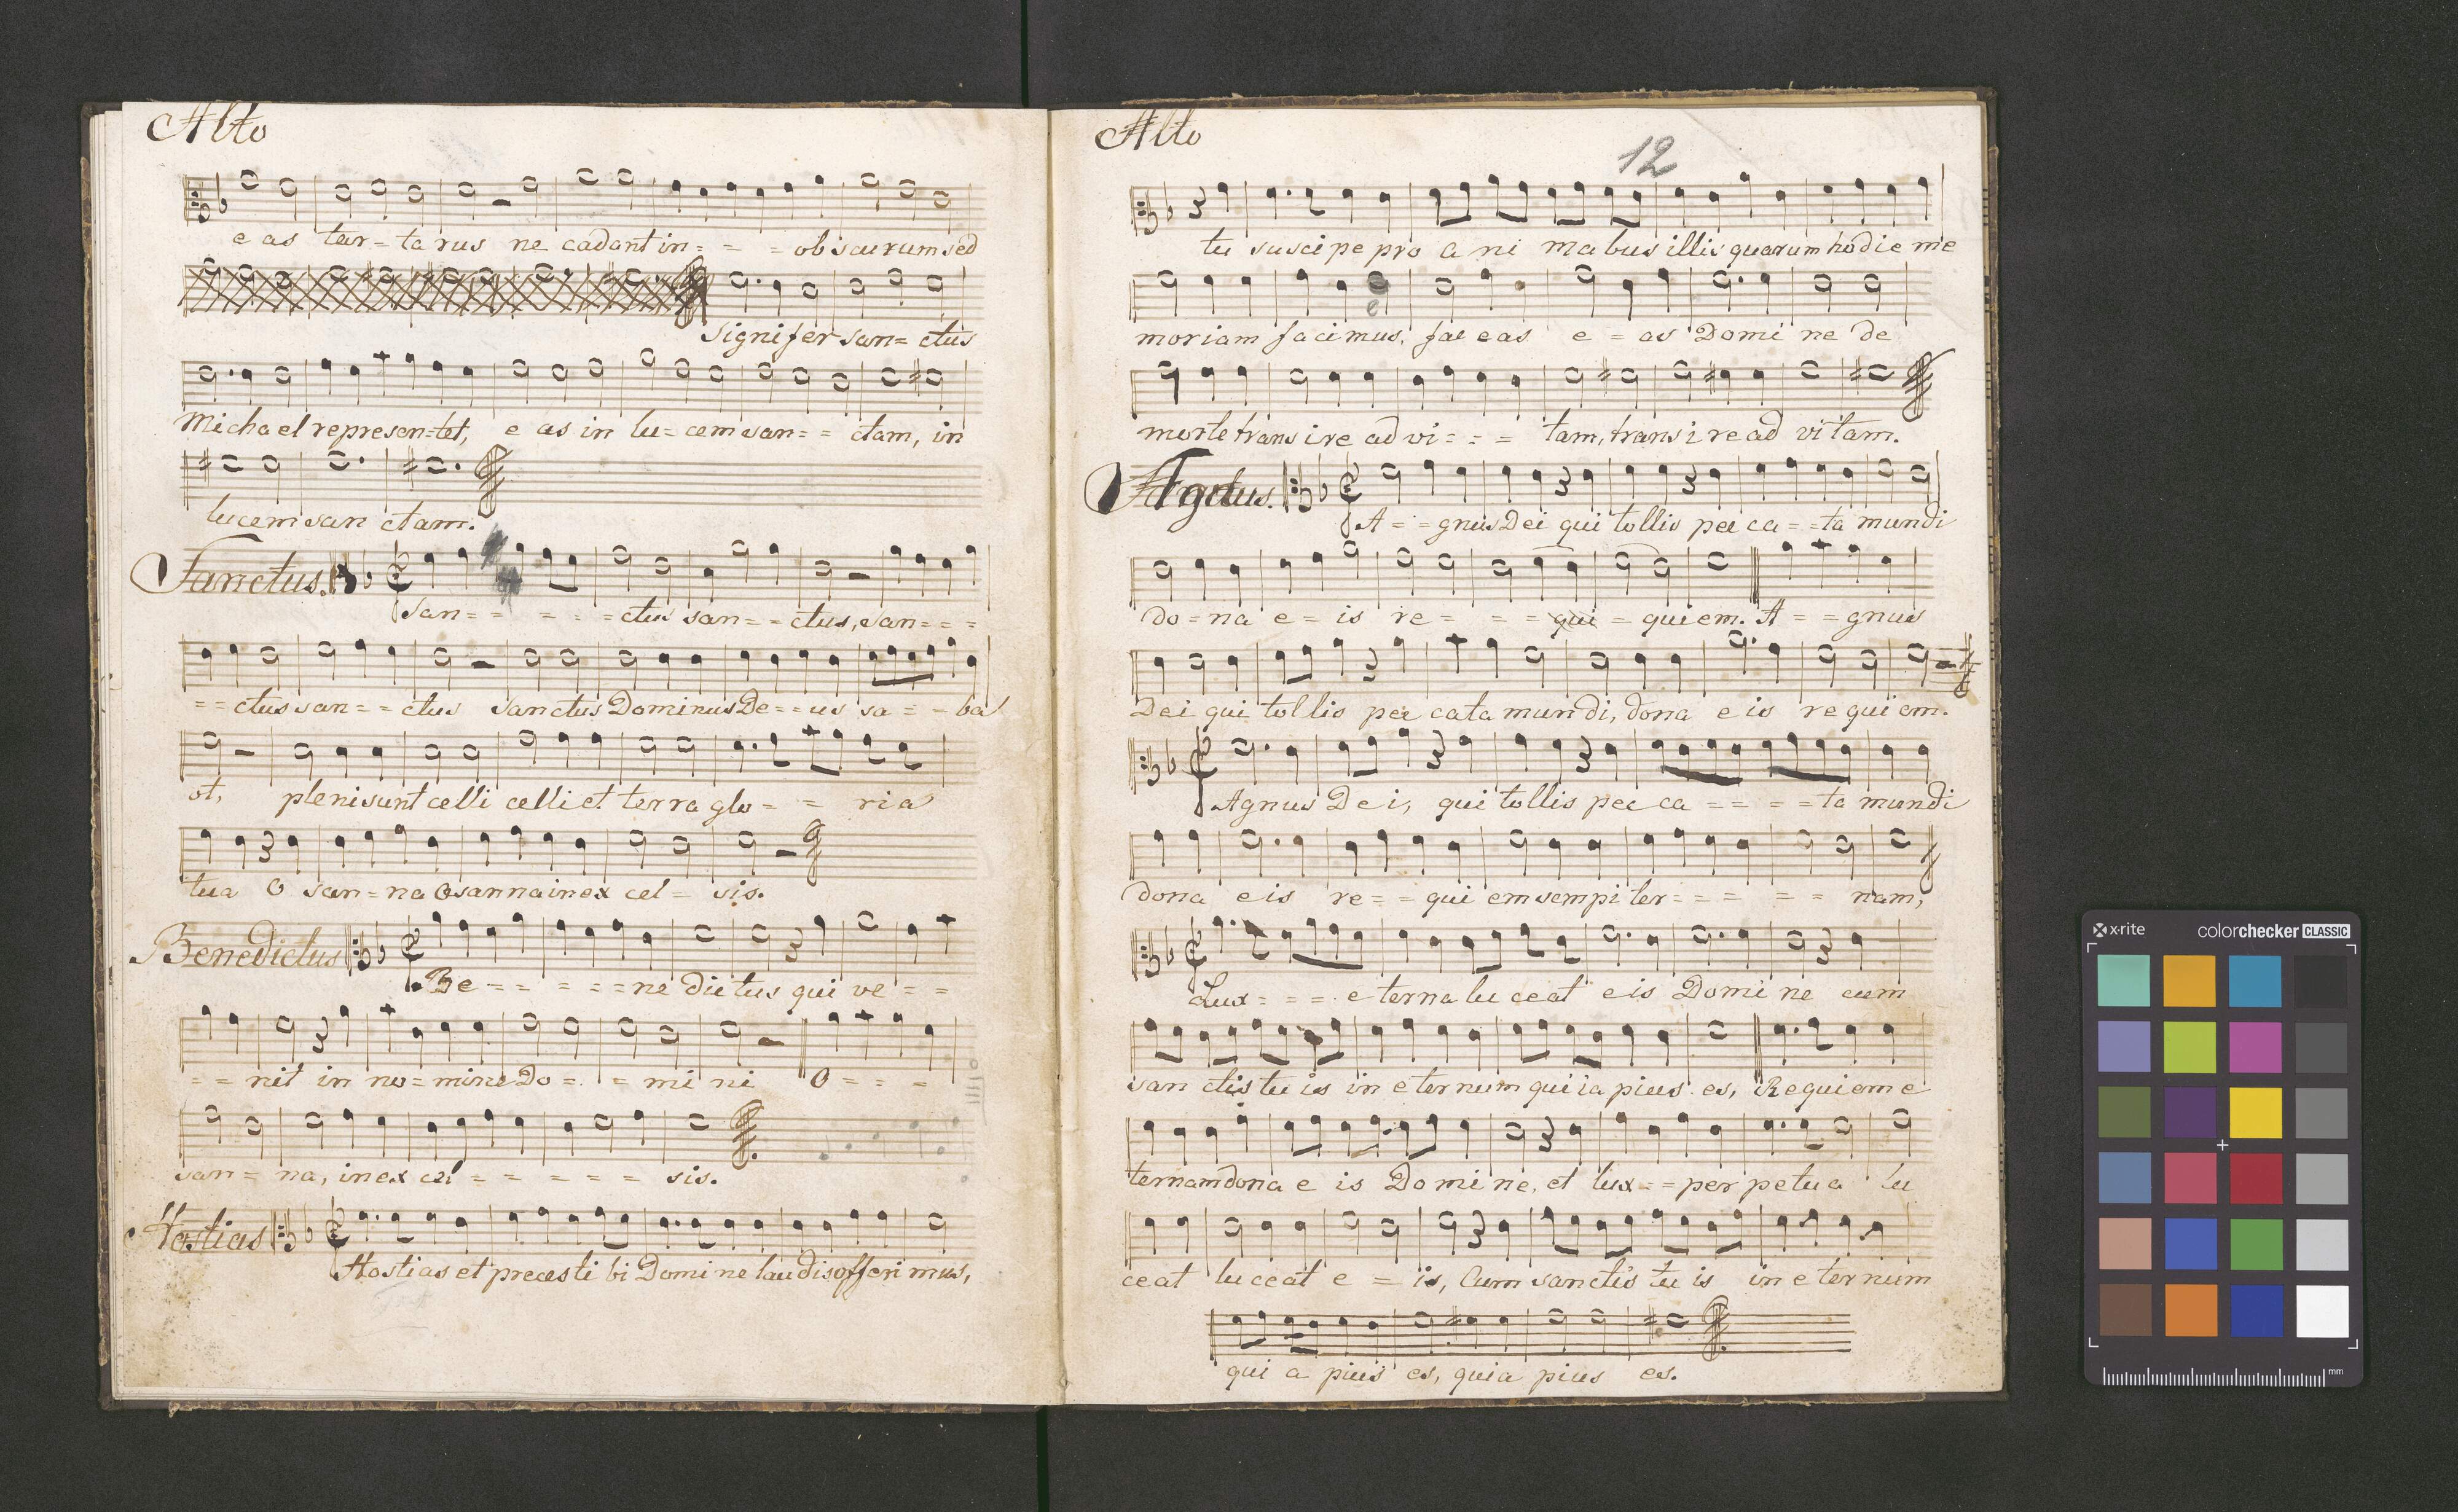 Alto
e as tar= ta rus ne cadant in= = = obscurum sed
signifer san= ctus
Michael represen=tet, e as in lu= cem san= = ctam, in
lucem san ctam.
Sanctus.
San= = = = =ctus san= =ctus, san= = =
= =ctus san= = ctus Sanctus Dominus De= =us sa = = ba
ot, pleni sunt celli celli et terra glo= = ria
tua O san=na Osanna in ex cel= sis.
Benedictus
Be = = = = =ne dictus qui ve = =
= = nit in no=mine Do=. = mi ni O = = =
san = na, in ex cel = = = = = sis.
Hostias
Hostias et preces ti bi Domine laudis offeri mus,
Alto
12
tu suscipe pro a ni mabus illis quarum hodie me
e
moriam facimus, fac eas e = as Domi ne de
morte transire ad vi= = = tam, transi re ad vitam.
Agnus.
A= =gnus Dei qui tollis pec ca= =ta mundi
do=na e= is re= = = qui = quiem. A = =gnus
Dei qui tollis pec cata mundi, dona e is requiem.
Agnus Dei, qui tollis pec ca = = = =ta mundi
dona e is re= = qui em sempi ter= = = = = nam,
Lux= = = = e terna luceat e is Domine cum
san ctis tu is in eternum qui ia pius es, Requiem e
ternam dona e is Domine, et lux= =perpetua lu
ceat luceat e = is, Cum sanctis tu is in e ter num
qui a pius es, quia pius es.
x-rite colorchecker CLASSIC
mm